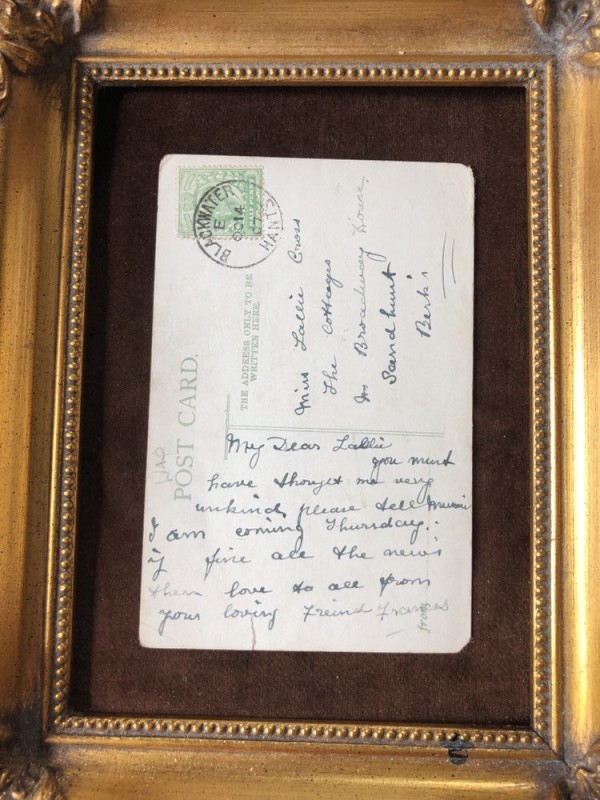 BLACKWATER
E
OC 14
07
HANTS
POST CARD.
THE ADDRESS ONLY TO BE
WRITTEN HERE.
Miss Lallie Cross
The Cottages
Nr Broadway House
Sandhurst
Berk's
My Dear Lallie
you must
have thought me very
unkind, please tell Mumi
I am coming Thursday.
if fine all the news
then love to all from
your loving Freind Frances
from